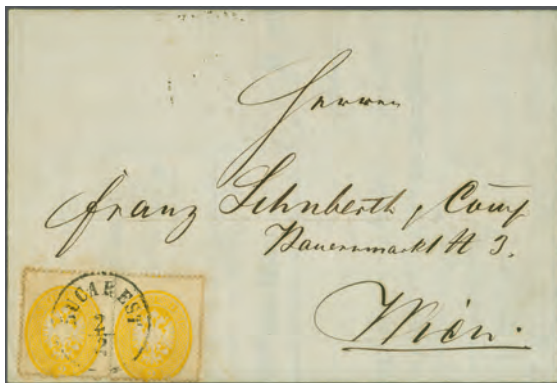 Herren
Franz Schuberth & Comp
Bauernmarkt № 3.
Wien.
BUCAREST